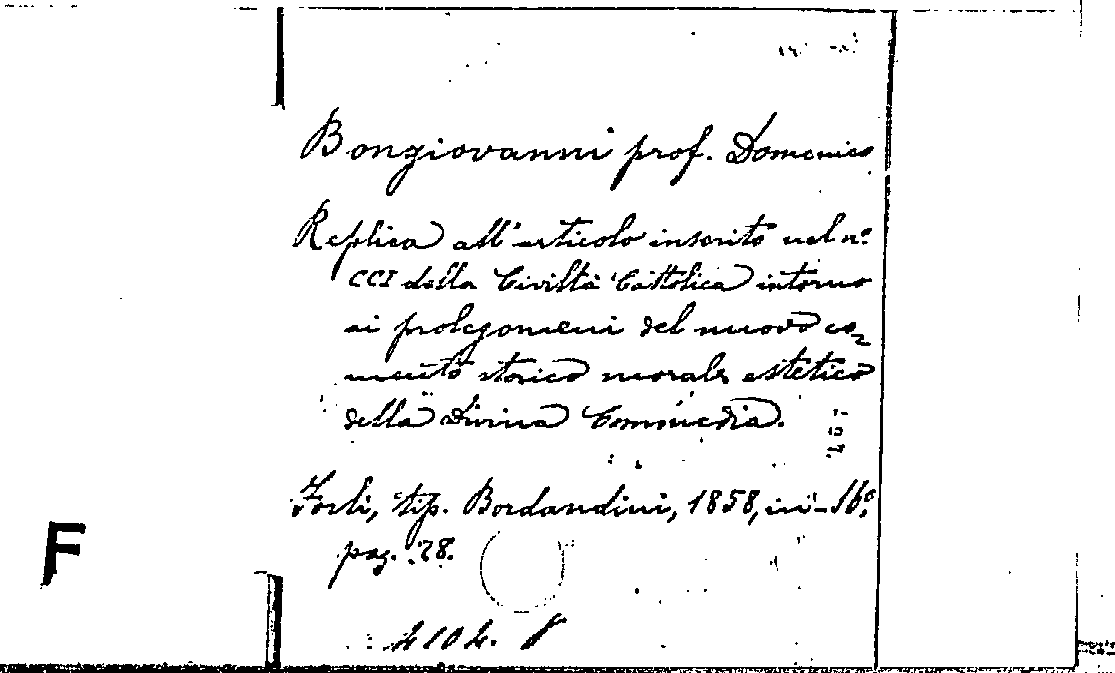 Bongiovanni prof. Domenico
Replica all'articolo inserito nel n.º
CCI della Civiltà Cattolica intorno
ai prolegomeni del nuovo co=
mento storico morale estetico
della Divina Commedia.
Forlì, tip. Bordandini, 1858, in-16º,
pag. 28.
F
4104.